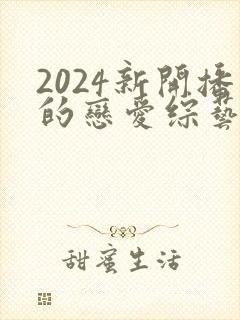 2024新開播
的戀愛綜藝
甜蜜生活